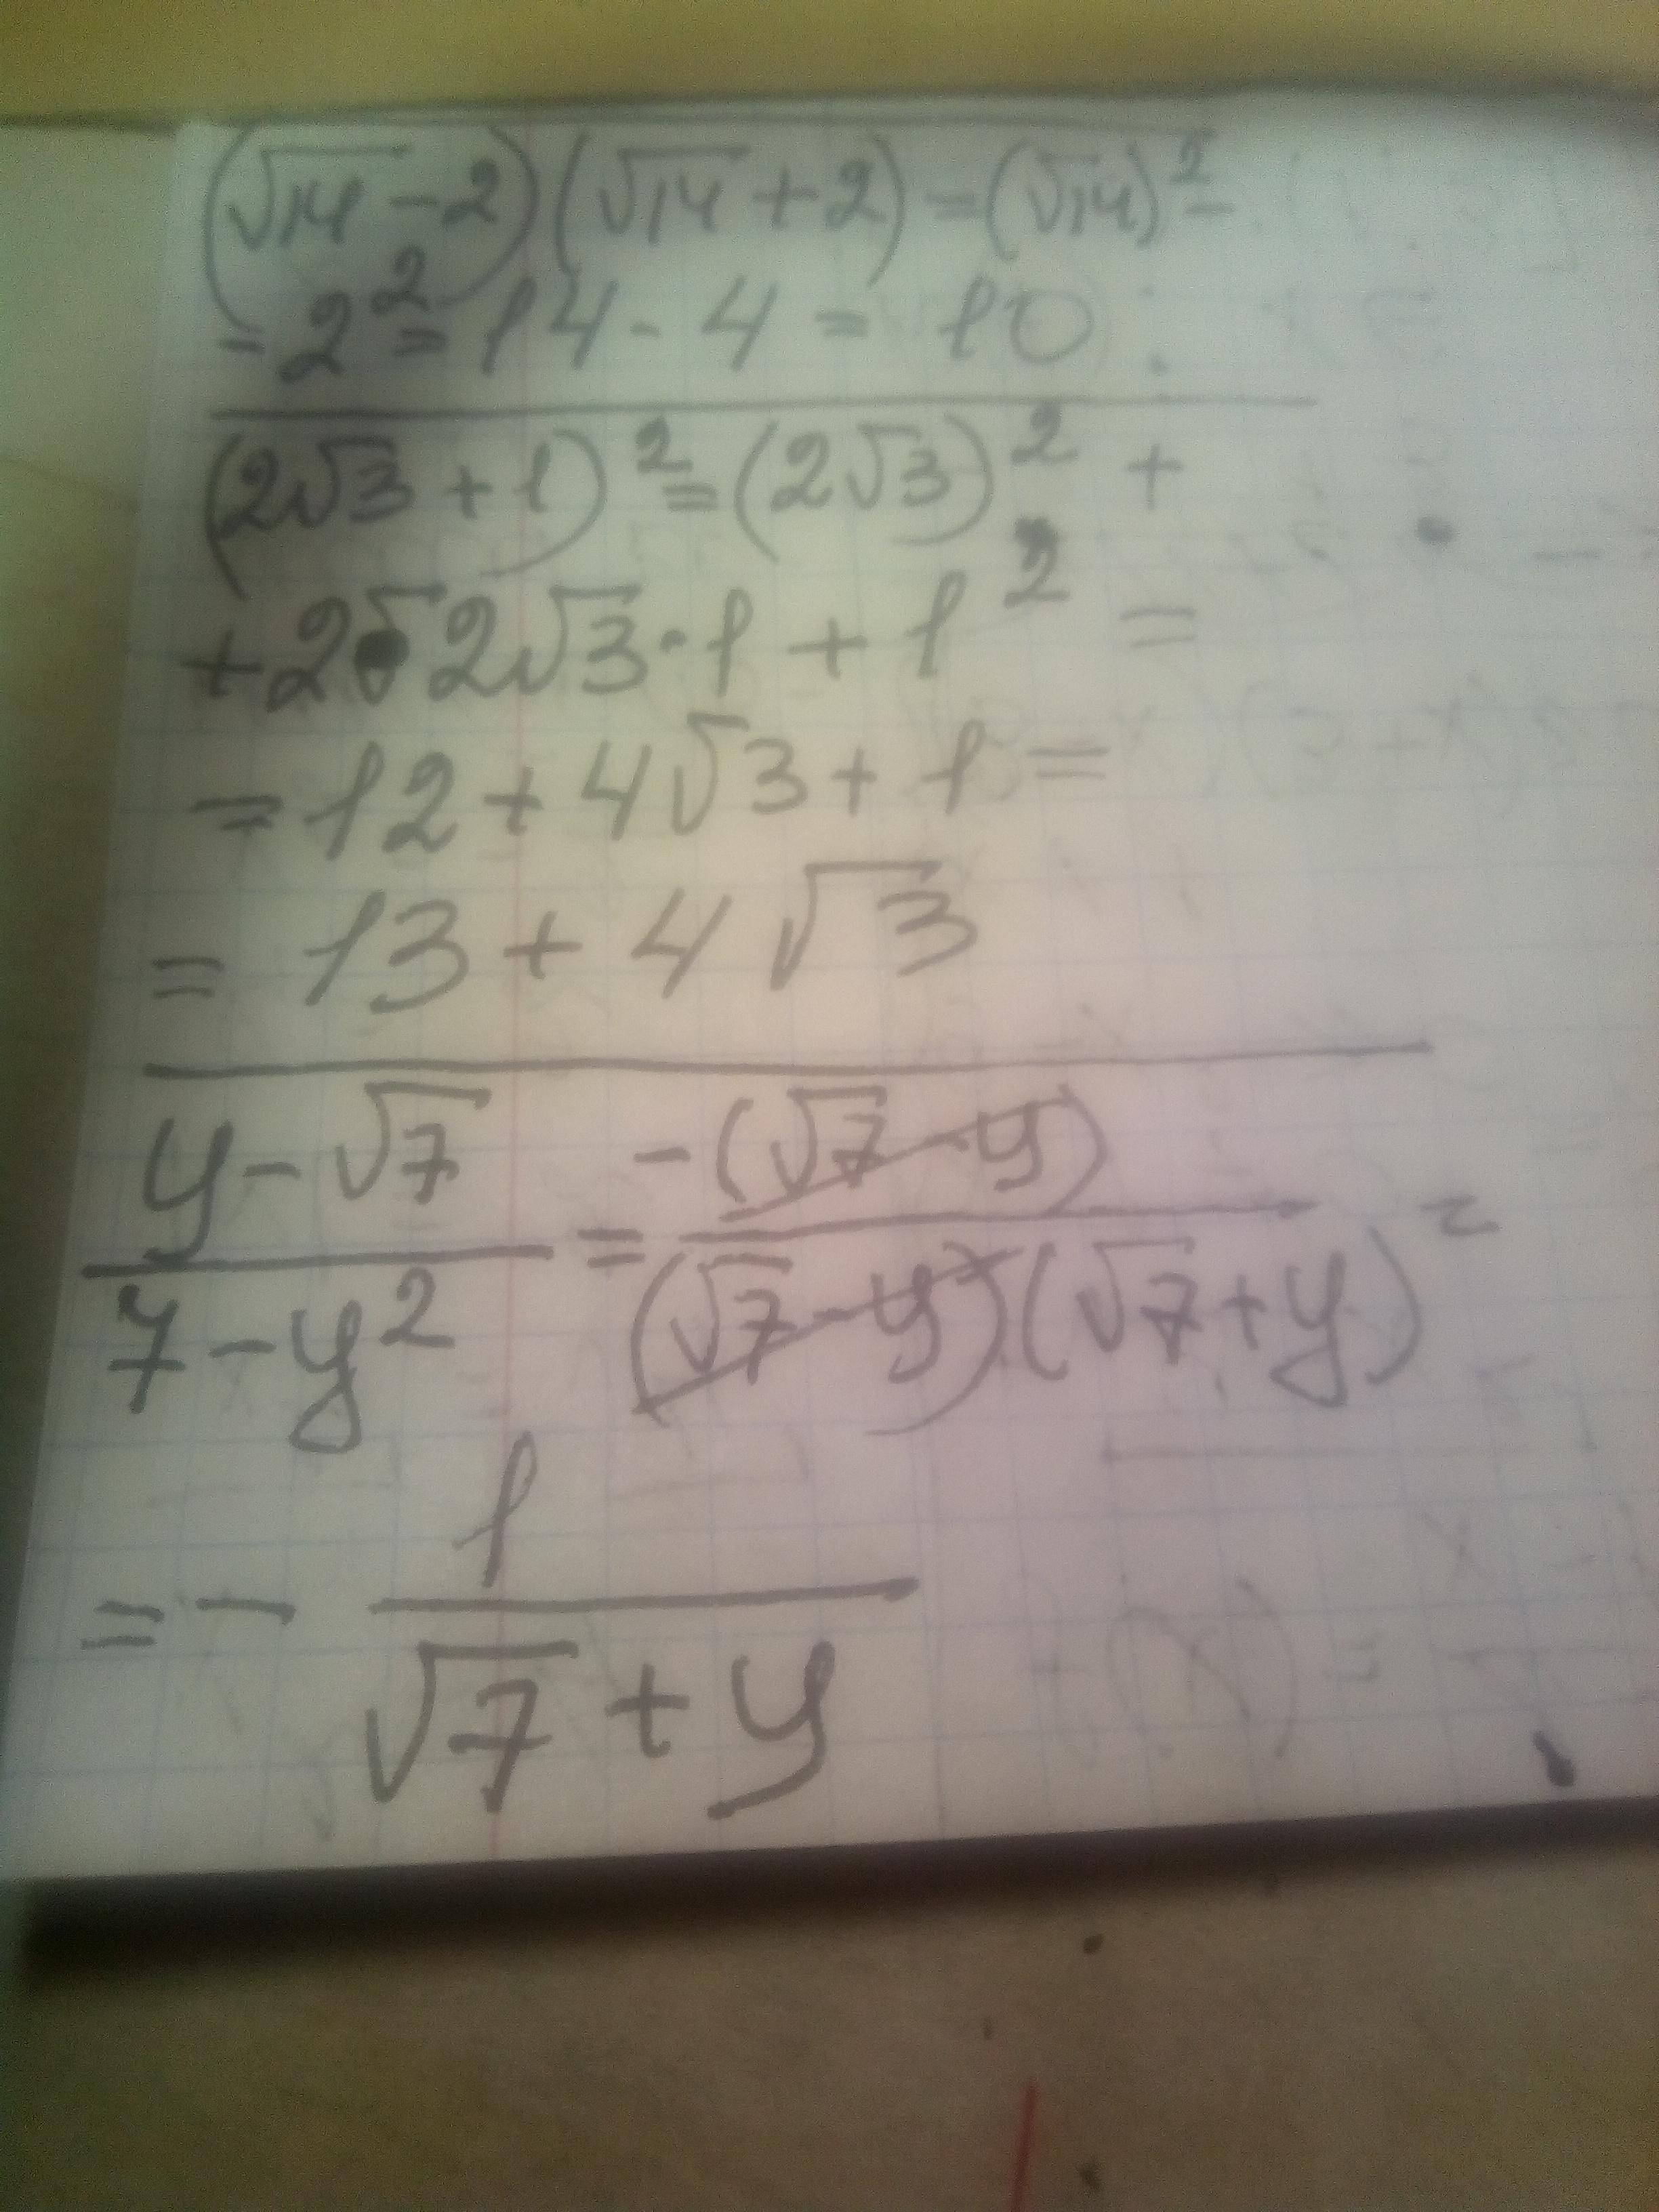 (√14 - 2)(√14 + 2) = (√14)² -
- 2² = 14 - 4 = 10
(2√3 + 1)² = (2√3)² +
+ 2 · 2√3 · 1 + 1² =
= 12 + 4√3 + 1 =
= 13 + 4√3
(y - √7)/(7 - y²) = -(√7 - y)/((√7 - y)(√7 + y)) =
= - 1/(√7 + y)